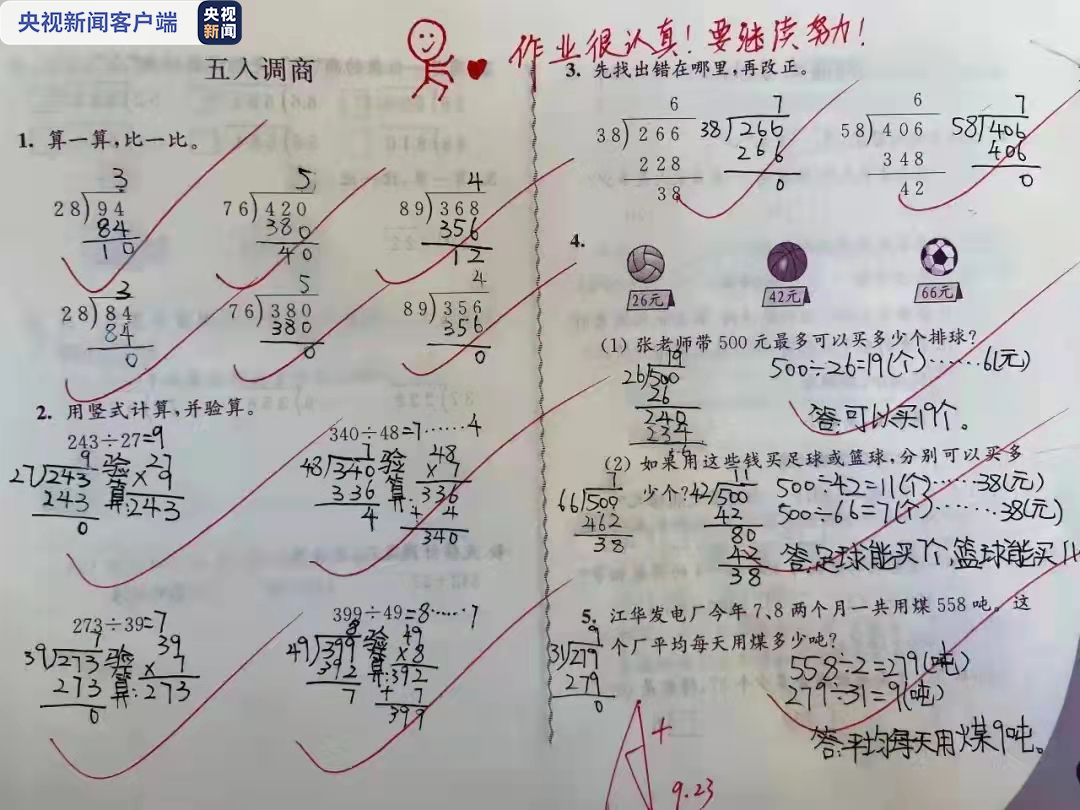 央视新闻客户端
央视
新闻
作业很认真！要继续努力！
五入调商
1. 算一算,比一比。
3
28)94
84
10
5
76)420
380
40
4
89)368
356
12
3
28)84
84
0
5
76)380
380
0
4
89)356
356
0
2. 用竖式计算,并验算。
243÷27=9
9
27)243
243
0
验算:
27
×9
243
340÷48=7……4
7
48)340
336
4
验算:
48
×7
336
+ 4
340
273÷39=7
7
39)273
273
0
验算:
39
×7
273
399÷49=8……7
8
49)399
392
7
验算:
49
×8
392
+ 7
399
3. 先找出错在哪里,再改正。
6
38)266
228
38
7
38)266
266
0
6
58)406
348
42
7
58)406
406
0
4.
26元
42元
66元
(1) 张老师带 500 元最多可以买多少个排球?
19
26)500
26
240
234
6
500÷26=19(个)……6(元)
答:可以买19个。
(2) 如果用这些钱买足球或篮球,分别可以买多
少个?
7
66)500
462
38
11
42)500
42
80
42
38
500÷42=11(个)……38(元)
500÷66=7(个)……38(元)
答:足球能买7个,篮球能买11
5. 江华发电厂今年 7、8 两个月一共用煤 558 吨。这
个厂平均每天用煤多少吨?
9
31)279
279
0
558÷2=279(吨)
279÷31=9(吨)
答:平均每天用煤9吨。
A+
9.23